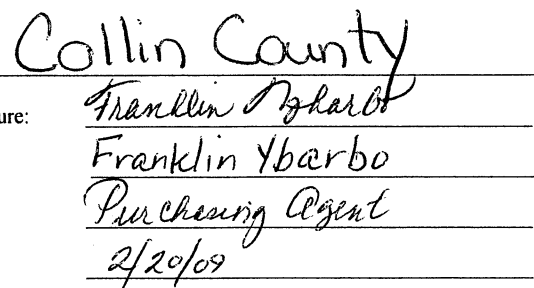 Collin County
ure: Franklin Ybarbo
Franklin Ybarbo
Purchasing Agent
2/20/09